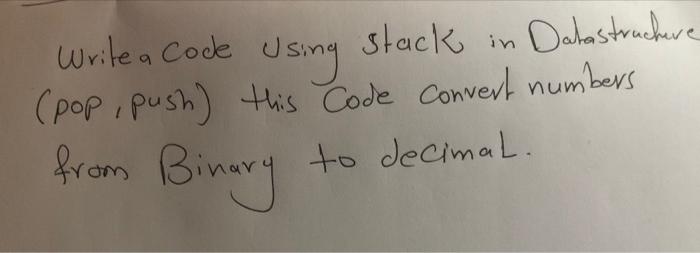 Write a Code Using Stack in Datastructure
(pop, push) this Code Convert numbers
from Binary to decimal.